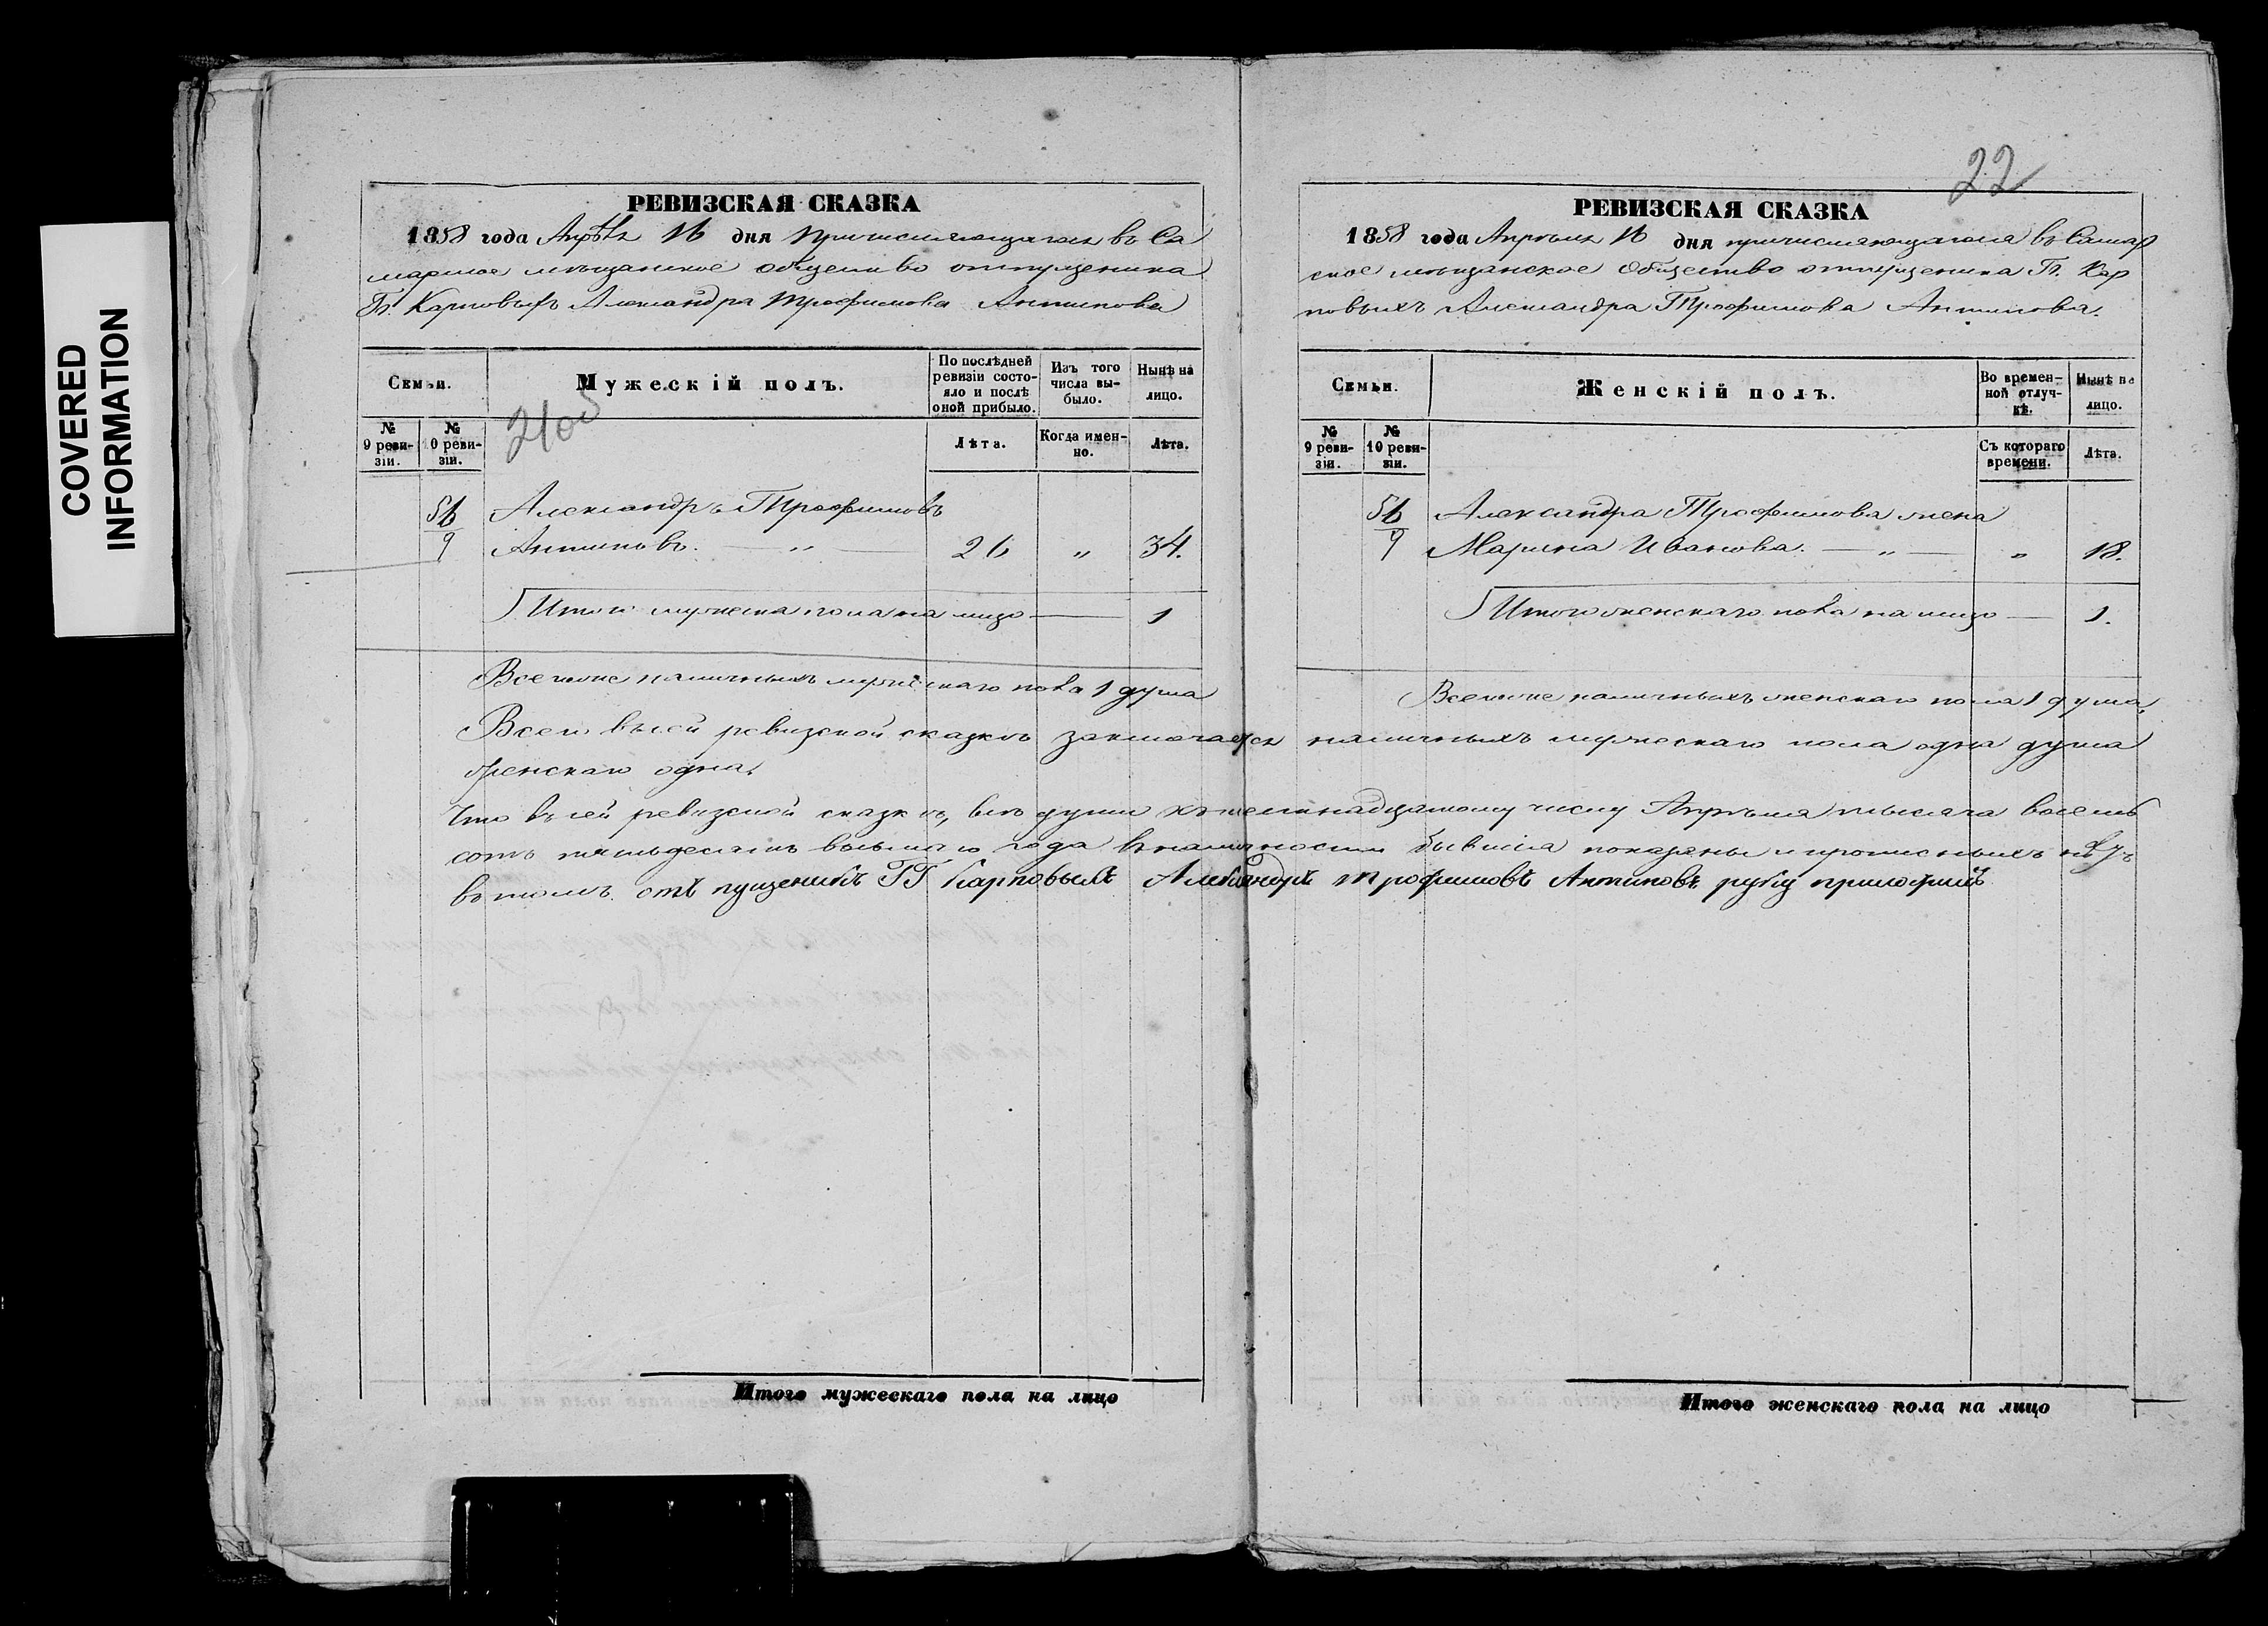 COVERED
INFORMATION
22
РЕВИЗСКАЯ СКАЗКА
1858 года Апрѣля 16 дня причисляющагося въ Са
марское мѣщанское общество отпущеника
Гг. Карповыхъ Александра Трофимова Антипова
Семьи.
Мужескій полъ.
По послѣдней ревизіи состояло и послѣ оной прибыло.
Изъ того числа выбыло.
Нынѣ на лицо.
№ 9 ревизіи.
№ 10 ревизіи.
Лѣта.
Когда именно.
Лѣта.
56 Александръ Трофимовъ
9 Антиповъ. — „ — 26 „ 34.
Итого мужеска пола на лицо — 1
Всего же наличныхъ мужескаго пола 1 душа
РЕВИЗСКАЯ СКАЗКА
1858 года Апрѣля 16 дня причисляющагося въ Самар
ское мѣщанское общество отпущеника Гг. Кар
повыхъ Александра Трофимова Антипова.
Семьи.
Женскій полъ.
Во временной отлучкѣ.
Нынѣ на лицо.
№ 9 ревизіи.
№ 10 ревизіи.
Съ котораго времени.
Лѣта.
56 Александра Трофимова жена
9 Марина Иванова. — „ — „ 18.
Итого женскаго пола на лицо — 1.
Всего же наличныхъ женскаго пола 1 душа,
Всего въ сей ревизской сказкѣ заключается наличныхъ мужескаго пола одна душа
женскаго одна,
Что въ сей ревизской сказкѣ, всѣ души къ шестнадцатому числу Апрѣля тысяча восемь
сотъ пятьдесятъ восьмаго года въ наличности бывшія показаны и прописныхъ нѣтъ
въ томъ отъ пущеникъ ГГ Карповыхъ Александръ Трофимовъ Антиповъ руку приложилъ
Итого мужескаго пола на лицо
Итого женскаго пола на лицо